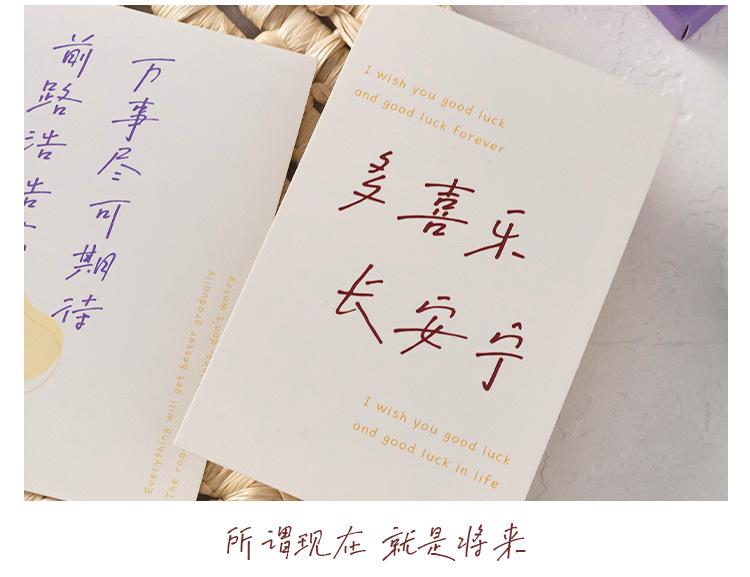 万事尽可期待
前路浩浩
Everything will get better gradually
The roa
don't worry
I wish you good luck
and good luck forever
多喜乐
长安宁
I wish you good luck
and good luck in life
所谓现在 就是将来